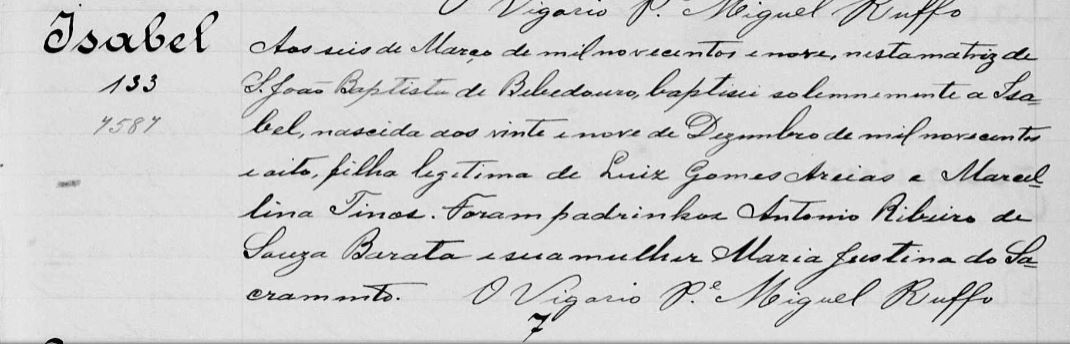 O Vigario P.e Miguel Ruffo
Isabel
133
7587
Aos seis de Março de mil novecentos e nove, nesta matriz de
S. João Baptista de Bebedouro, baptisei solemnemente a Isa=
bel, nascida aos vinte e nove de Dezembro de mil novecentos
e oito, filha legitima de Luiz Gomes Areias e Marcel=
lina Tinos. Foram padrinhos Antonio Ribeiro de
Souza Barata e sua mulher Maria Justina do Sa=
cramento. O Vigario P.e Miguel Ruffo
7